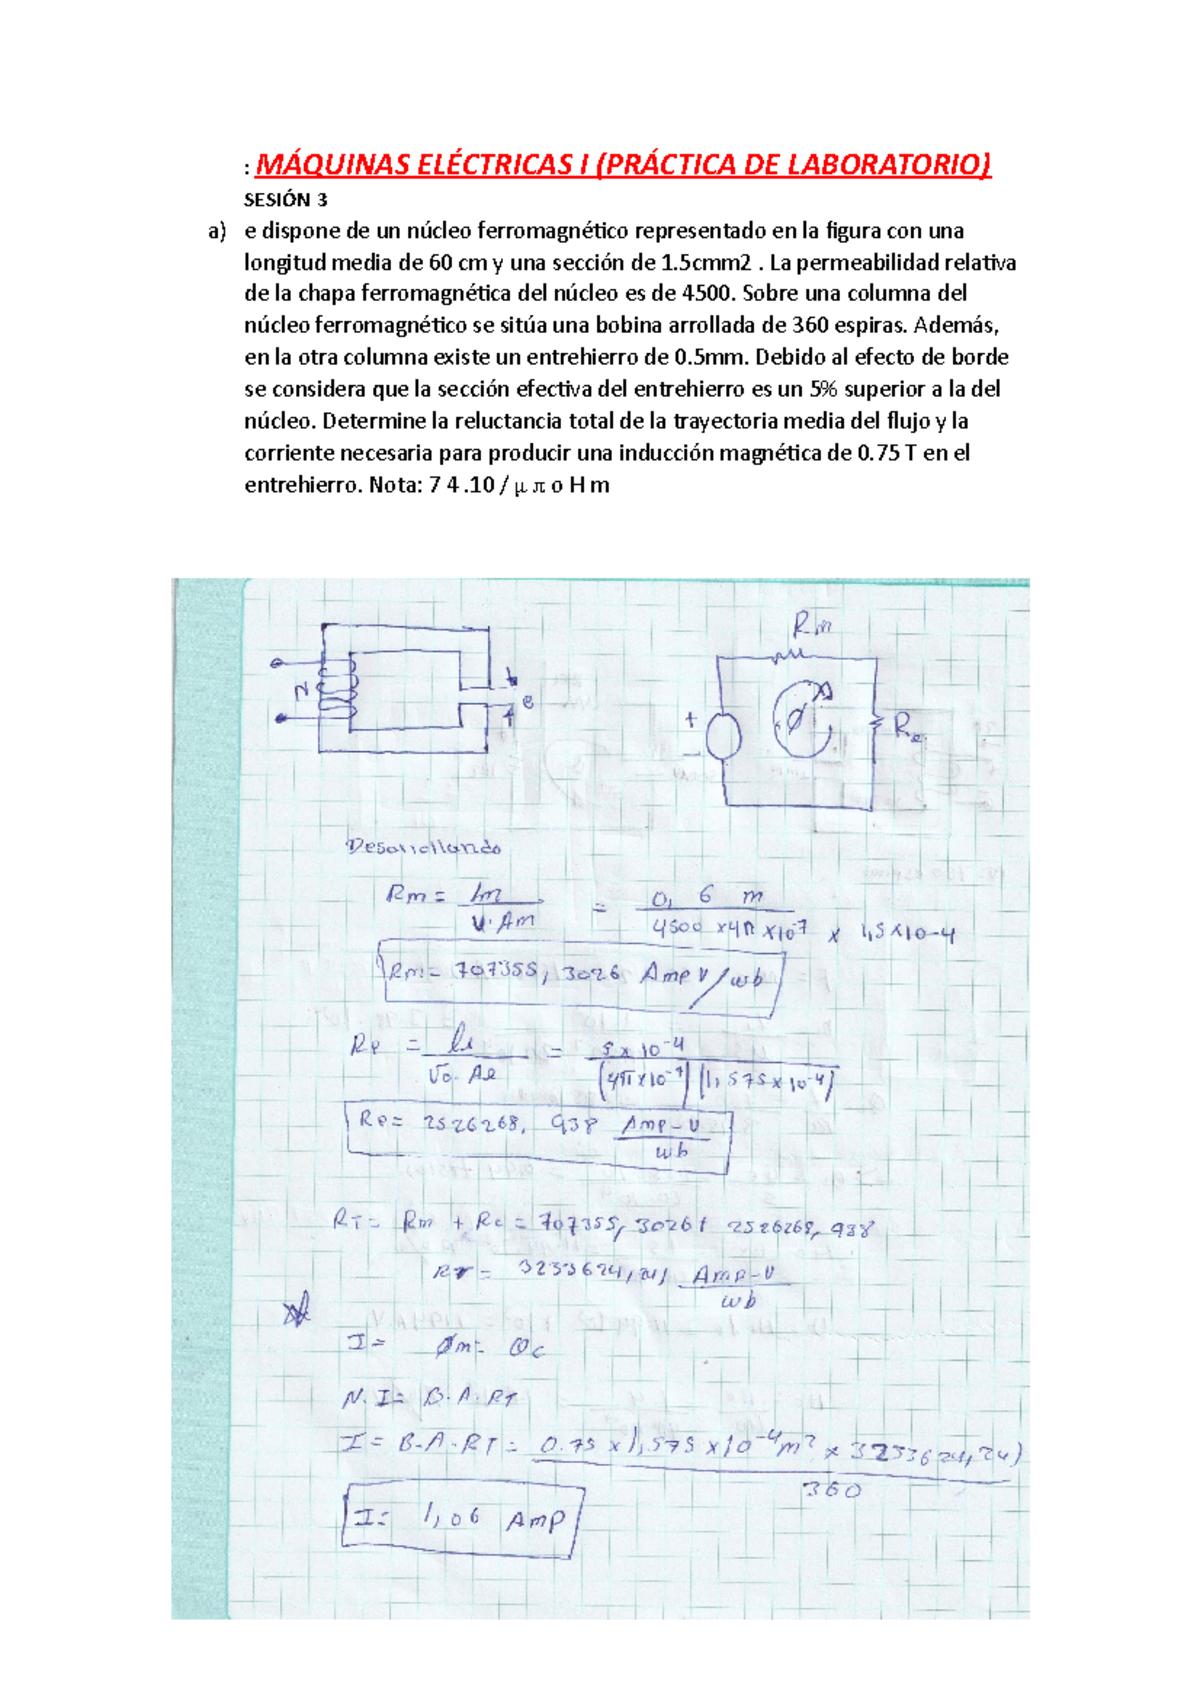 : MÁQUINAS ELÉCTRICAS I (PRÁCTICA DE LABORATORIO)
SESIÓN 3
a) e dispone de un núcleo ferromagnético representado en la figura con una
longitud media de 60 cm y una sección de 1.5cmm2 . La permeabilidad relativa
de la chapa ferromagnética del núcleo es de 4500. Sobre una columna del
núcleo ferromagnético se sitúa una bobina arrollada de 360 espiras. Además,
en la otra columna existe un entrehierro de 0.5mm. Debido al efecto de borde
se considera que la sección efectiva del entrehierro es un 5% superior a la del
núcleo. Determine la reluctancia total de la trayectoria media del flujo y la
corriente necesaria para producir una inducción magnética de 0.75 T en el
entrehierro. Nota: 7 4 .10 / μ π o H m
Rm
N
e
+
-
Ø
Re
Desarrollando
Rm = lm / U·Am = 0,6 m / 4500 x4π x10-7 x 1,5x10-4
Rm = 707355,3026 Amp V/wb
Re = le / Uo·Ae = 5x10-4 / (4πx10-7)(1,575x10-4)
Re = 2526268,938 Amp-V / wb
RT = Rm + Re = 707355,3026 + 2526268,938
RT = 3233624,241 Amp-V / wb
I = Øm = Øc
N·I = B·A·RT
I = B·A·RT = 0.75 x1,575x10-4 m² x 3233624,241 / 360
I = 1,06 Amp